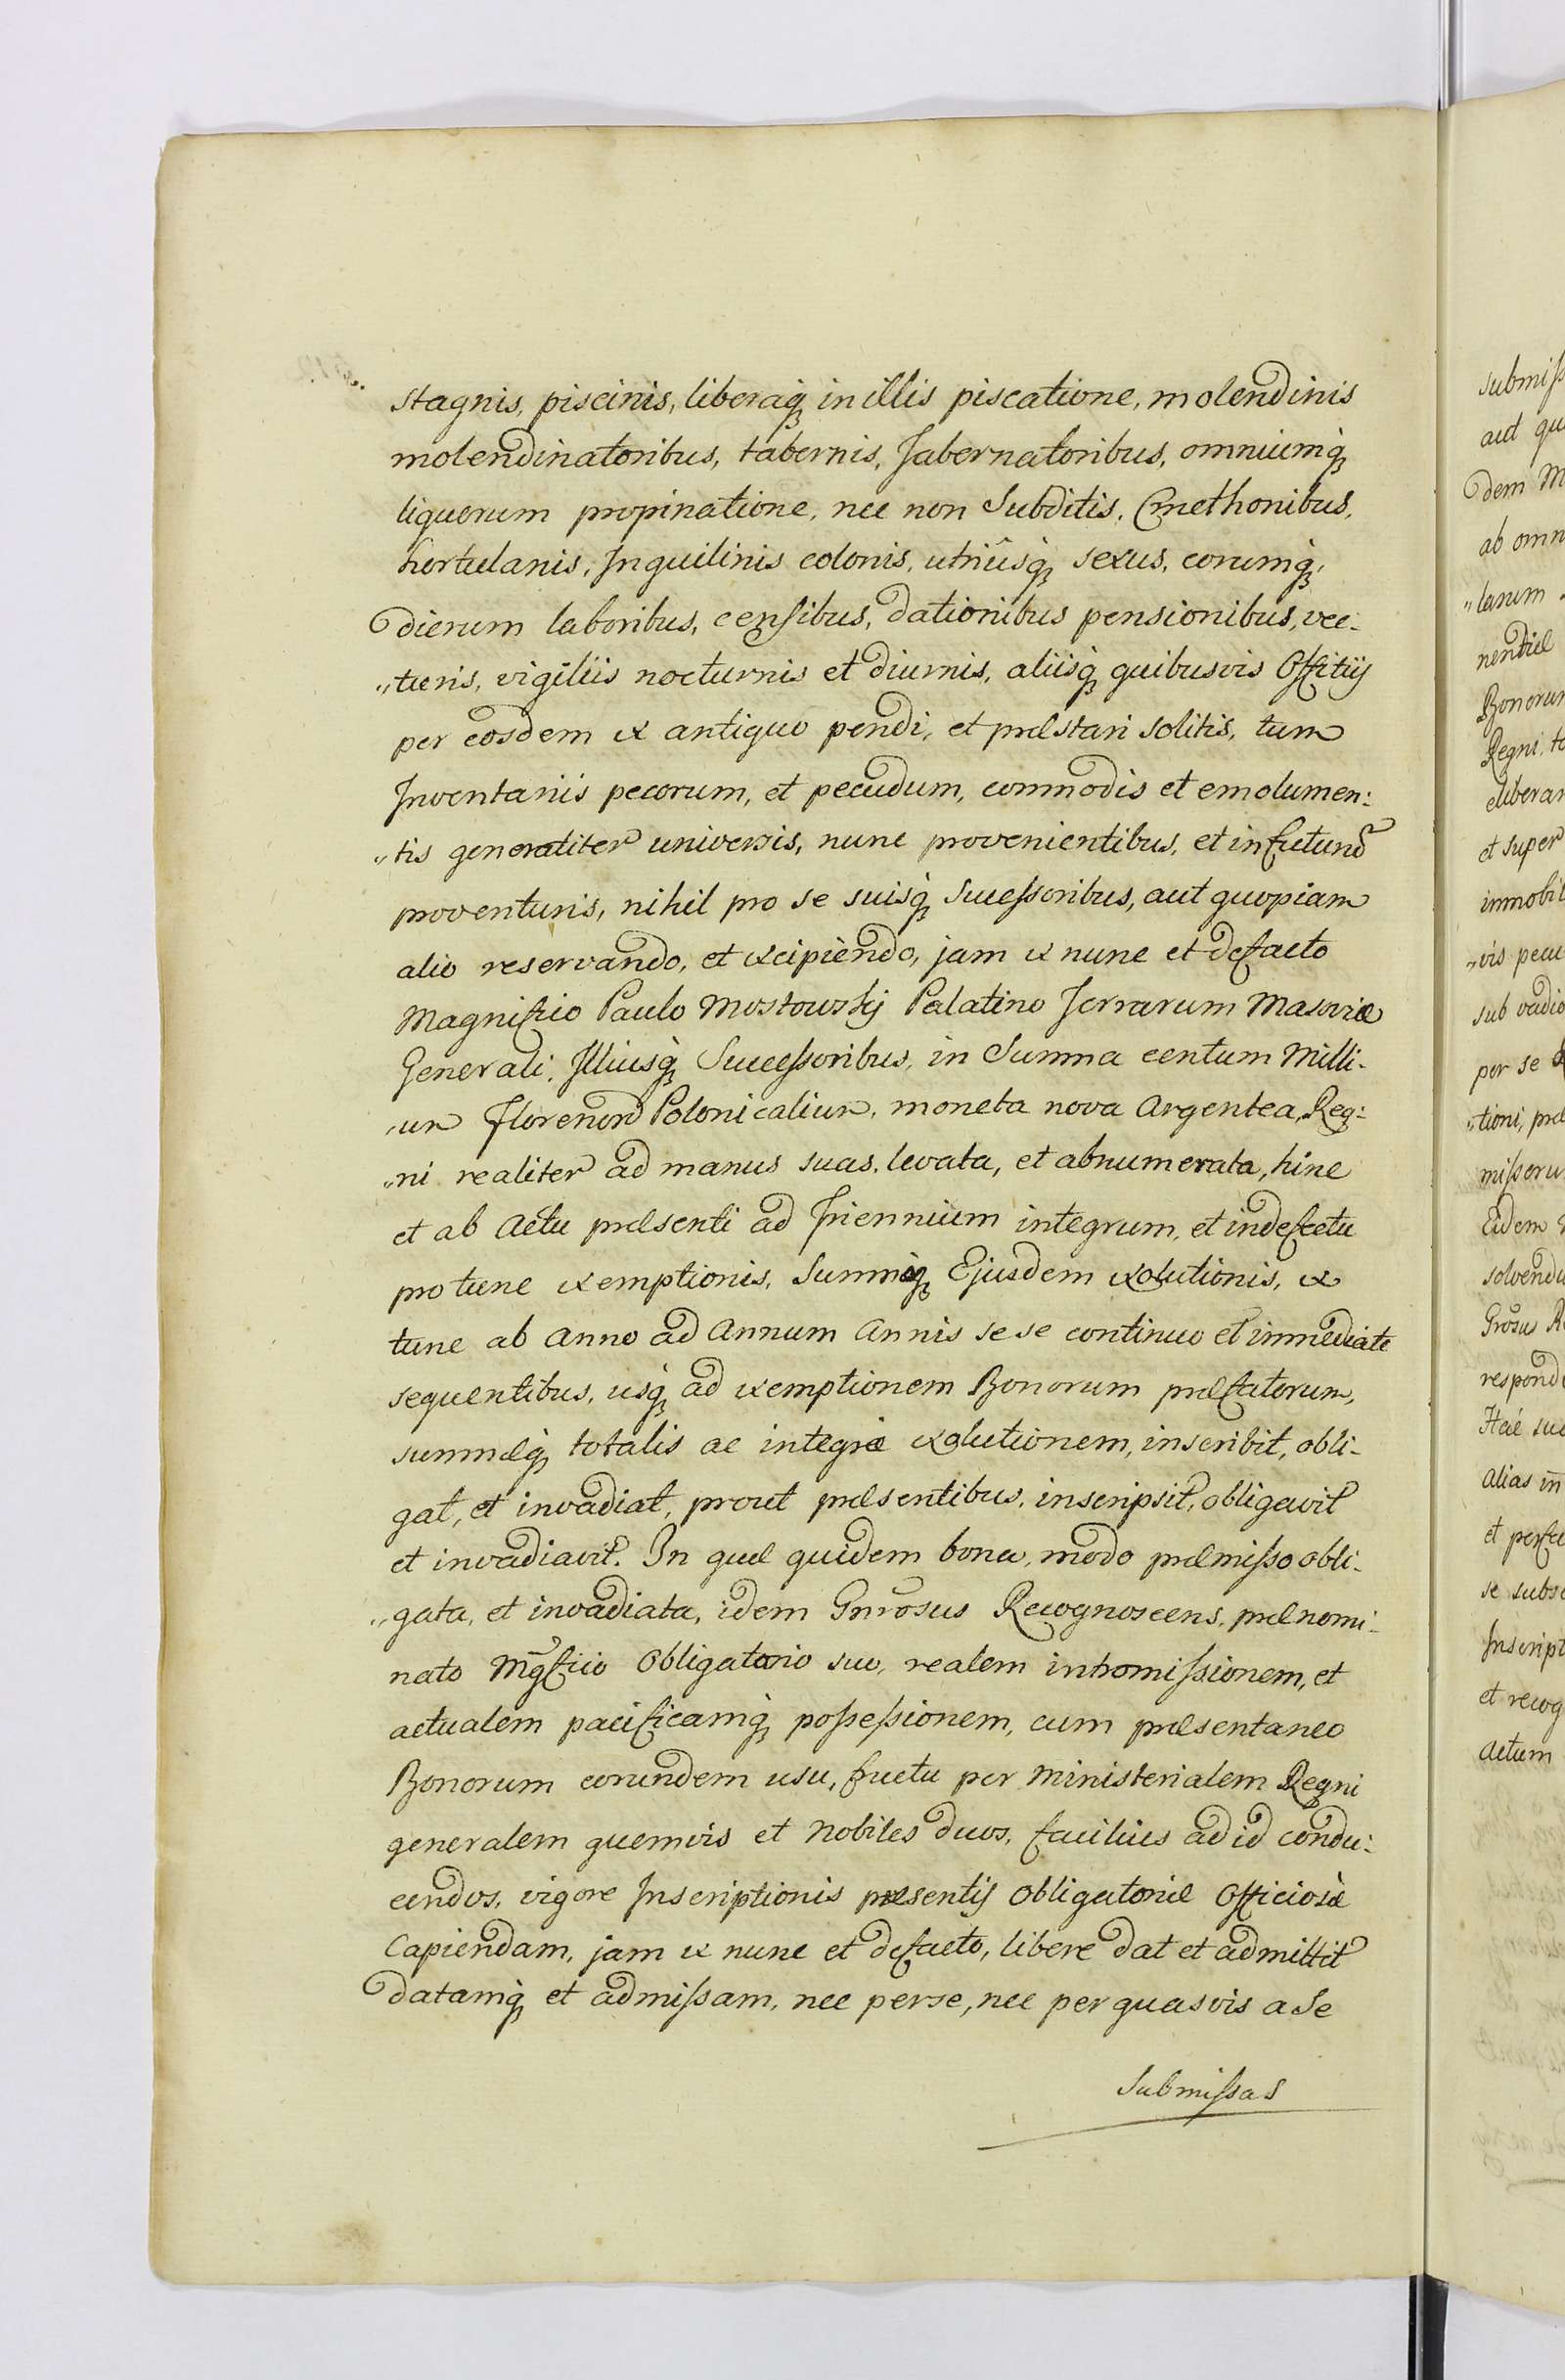 stagnis, piscinis, liberaq̨ in illis piscatione, molendinis
molendinatoribus, tabernis, Tabernatoribus, omniumq̨
liquorum propinatione, nec non Subditis, Cmethonibus,
hortulanis, Inquilinis colonis, utriûsq̨ sexus, eorumq̨,
dierum laboribus, censibus, dationibus pensionibus, vec:
„turis, vigiliis nocturnis et diurnis, aliisq̨ quibusvis Offitiis
per eosdem ex antiquo pendi, et præstari solitis, tum
Inventariis pecorum, et pecudum, commodis et emolumen:
„tis generaliter universis, nunc provenientibus, et in futurũ
proventuris, nihil pro se suisq̨ Sucessoribus, aut quopiam
alio reservando, et excipiendo, jam ex nunc et defacto
Magnifico Paulo Mostowskij Palatino Terrarum Masoviæ
Generali, Illiusq̨ Successoribus, in Summa centum Milli-
„um Florenorũ Polonicalium, moneta nova Argentea, Reg:
„ni realiter ad manus suas, levata, et abnumerata, hinc
et ab Actu præsenti ad Triennium integrum, et indefectu
pro tunc exemptionis, Summæq̨ Ejusdem exolutionis, ex
tunc ab Anno ad Annum Annis se se continuo et immediate
sequentibus, usq̨ ad exemptionem Bonorum præfatorum,
summæq̨ totalis ac integræ exolutionem, inscribit, obli-
gat, et invadiat, prout præsentibus, inscripsit, obligavit
et invadiavit. In quæ quidem bona, modo præmisso obli-
„gata, et invadiata, idem Gnrõsus Recognoscens, prænomi-
nato Mgffico Obligatorio suo, realem intromissionem, et
actualem pacificamq̨ possessionem, cum præsentaneo
Bonorum eorundem usu, fructu per Ministerialem Regni
generalem quemvis et Nobiles duos, facilius ad id condu:
cendos, vigore Inscriptionis præsentis Obligatoriæ Officiosæ
Capiendam, jam ex nunc et defacto, libere dat et admittit
datamq̨ et admissam, nec per se, nec per quasvis a Se
Submissas
submiss
aut qu
dem M
ab omn
„larum
Bonorum
Regni, to
et super
immobil
„vis pecu
sub vadio
per se
„tioni, præ
missoru
Eidem
solvendu
respond
alias in
Inscript
et recog
Actum